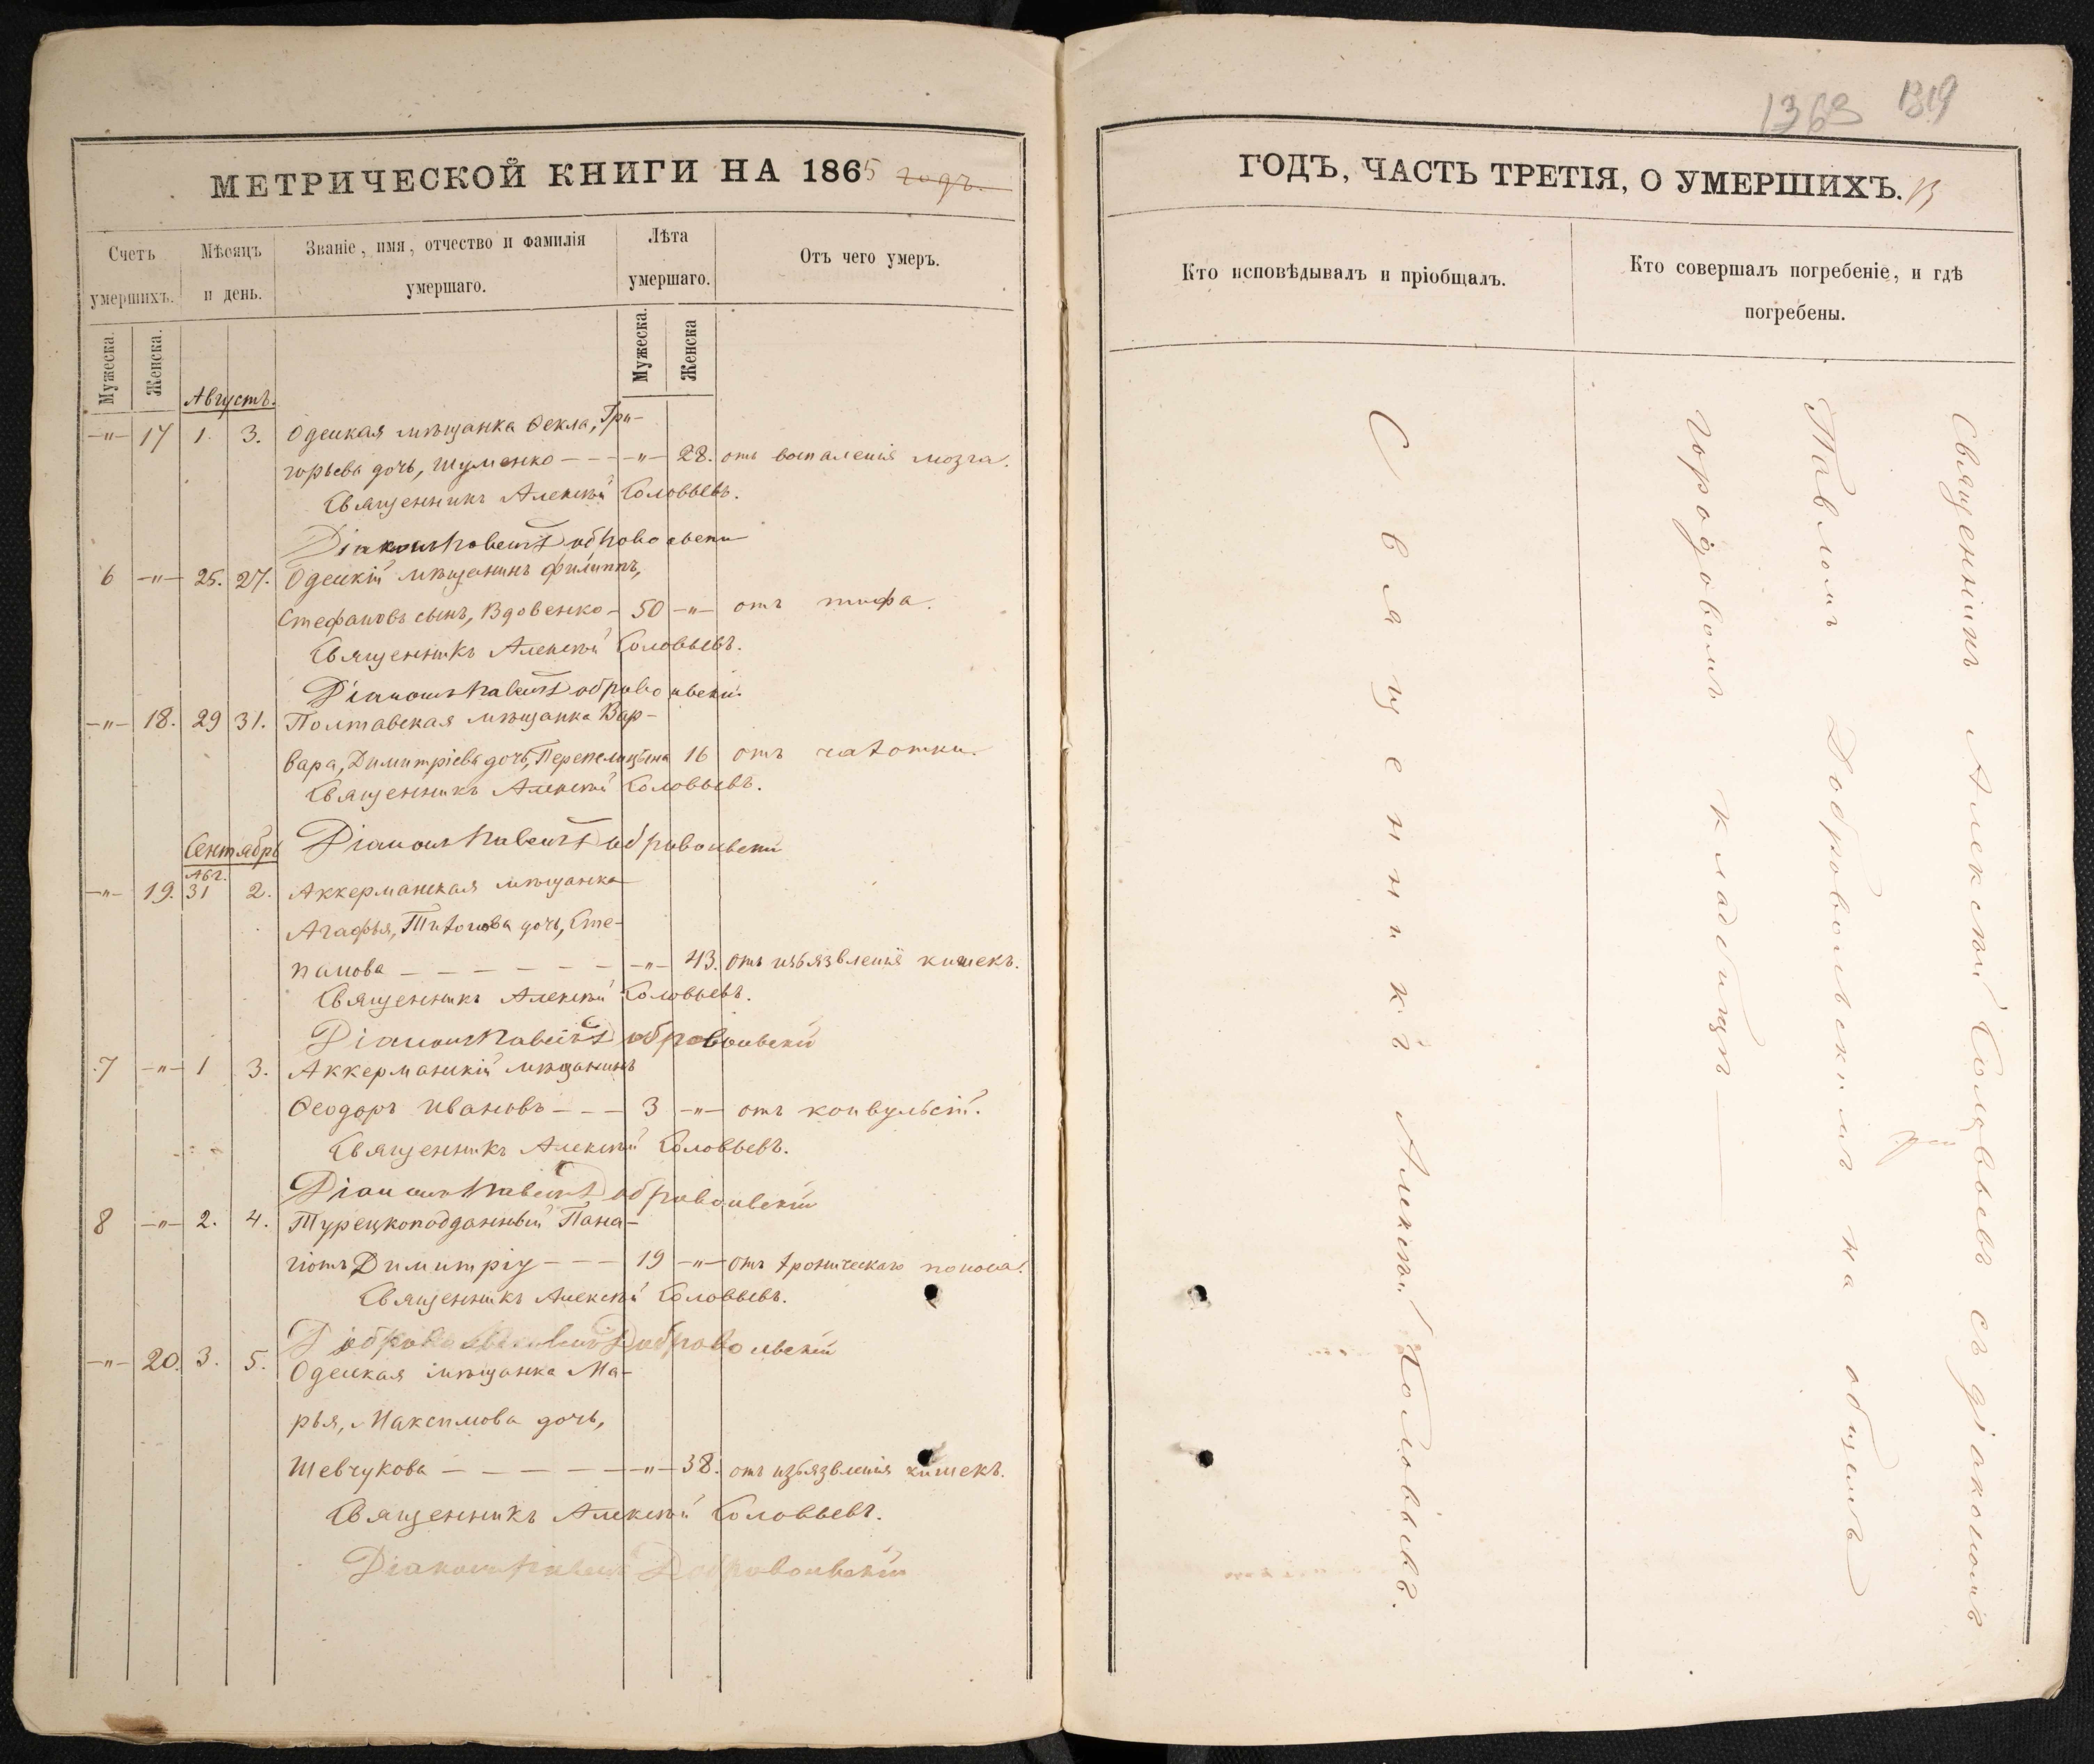 МЕТРИЧЕСКОЙ КНИГИ НА 1865 годъ.
Счетъ умершихъ.
Мѣсяцъ и день.
Званіе, имя, отчество и фамилія умершаго.
Лѣта умершаго.
Отъ чего умеръ.
Мужеска.
Женска.
Мужеска.
Женска
Августъ.
—"— 17 1. 3. Одесская мѣщанка Ѳекла, Гри-
горьева дочь, Шуменко — — —"— 28. отъ воспаленія мозга.
Священникъ Алексѣй Соловьевъ.
Діаконъ Павелъ Добровольскій
6 —"— 25. 27. Одесскій мѣщанинъ Филиппъ,
Стефановъ сынъ, Вдовенко — 50 —"— отъ тифа.
Священникъ Алексѣй Соловьевъ.
Діаконъ Павелъ Добровольскій
—"— 18. 29 31. Полтавская мѣщанка Вар-
вара, Димитріева дочь, Перепелицына 16 отъ чахотки.
Священникъ Алексѣй Соловьевъ.
Діаконъ Павелъ Добровольскій
Сентябрь
Авг.
—"— 19. 31 2. Аккерманская мѣщанка
Агафья, Титова дочь, Сте-
панова — — — — — —"— 43. отъ изъязвленія кишекъ.
Священникъ Алексѣй Соловьевъ.
Діаконъ Павелъ Добровольскій
7 —"— 1 3. Аккерманскій мѣщанинъ
Ѳеодоръ Ивановъ — — — 3 —"— отъ конвульсій.
Священникъ Алексѣй Соловьевъ.
Діаконъ Павелъ Добровольскій
8 —"— 2. 4. Турецкоподданный Пана-
гіотъ Димитріу — — — 19 —"— отъ хроническаго поноса.
Священникъ Алексѣй Соловьевъ.
Добровольскій
—"— 20. 3. 5. Одесская мѣщанка Ма-
рья, Максимова дочь,
Шевчукова — — — — — —"— 38. отъ изъязвленія кишекъ.
Священникъ Алексѣй Соловьевъ.
Діаконъ Павелъ Добровольскій
1368 1319
ГОДЪ, ЧАСТЬ ТРЕТІЯ, О УМЕРШИХЪ.
Кто исповѣдывалъ и пріобщалъ.
Кто совершалъ погребеніе, и гдѣ погребены.
Священникъ Алексѣй Соловьевъ.
Священникъ Алексѣй Соловьевъ съ діакономъ
Павломъ Добровольскимъ на общемъ
городовомъ кладбищѣ